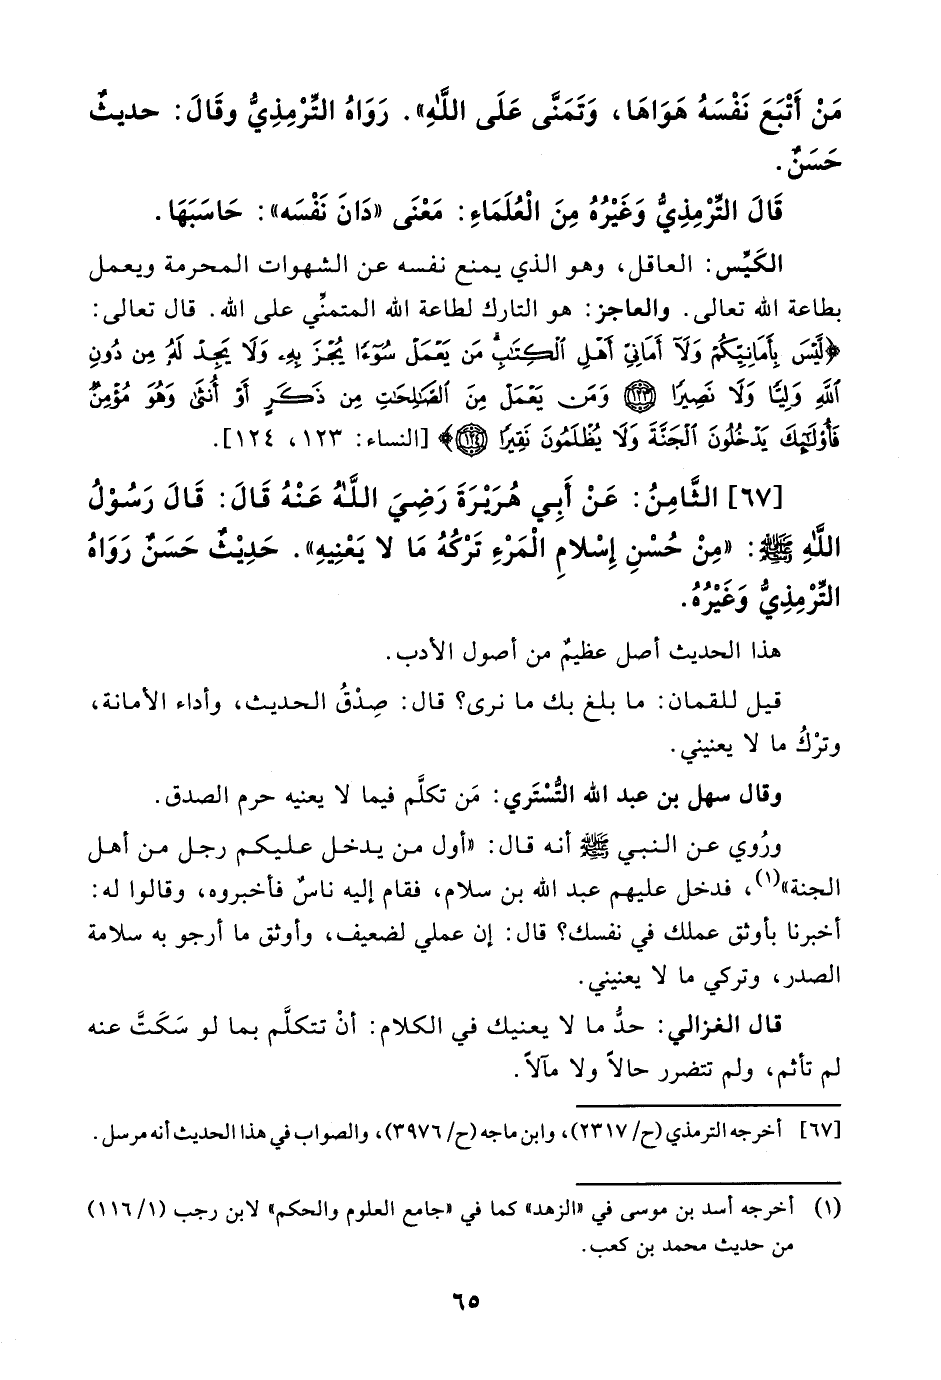 مَنْ أَتْبَعَ نَفْسَهُ هَوَاهَا، وَتَمَنَّى عَلَى اللَّهِ». رَوَاهُ التِّرْمِذِيُّ وقَالَ: حديثٌ
حَسَنٌ.
قَالَ التِّرْمِذِيُّ وَغَيْرُهُ مِنَ الْعُلَمَاءِ: مَعْنَى «دَانَ نَفْسَه»: حَاسَبَهَا.
الكَيِّس: العاقل، وهو الذي يمنع نفسه عن الشهوات المحرمة ويعمل
بطاعة الله تعالى. والعاجز: هو التارك لطاعة الله المتمنِّي على الله. قال تعالى:
﴿لَّيْسَ بِأَمَانِيِّكُمْ وَلَآ أَمَانِيِّ أَهْلِ ٱلْكِتَٰبِۗ مَن يَعْمَلْ سُوٓءًا يُجْزَ بِهِۦ وَلَا يَجِدْ لَهُۥ مِن دُونِ
ٱللَّهِ وَلِيًّا وَلَا نَصِيرًا ۝١٢٣ وَمَن يَعْمَلْ مِنَ ٱلصَّٰلِحَٰتِ مِن ذَكَرٍ أَوْ أُنثَىٰ وَهُوَ مُؤْمِنٌ
فَأُو۟لَٰٓئِكَ يَدْخُلُونَ ٱلْجَنَّةَ وَلَا يُظْلَمُونَ نَقِيرًا ۝١٢٤﴾ [النساء: ١٢٣، ١٢٤].
[٦٧] الثَّامِنُ: عَنْ أَبِي هُرَيْرَةَ رَضِيَ اللَّهُ عَنْهُ قَالَ: قَالَ رَسُوْلُ
اللَّهِ ﷺ: «مِنْ حُسْنِ إِسْلامِ الْمَرْءِ تَرْكُهُ مَا لا يَعْنِيهِ». حَدِيْثٌ حَسَنٌ رَوَاهُ
التِّرْمِذِيُّ وَغَيْرُهُ.
هذا الحديث أصل عظيمٌ من أصول الأدب.
قيل للقمان: ما بلغ بك ما نرى؟ قال: صِدْقُ الحديث، وأداء الأمانة،
وترْكُ ما لا يعنيني.
وقال سهل بن عبد الله التُّسْتَري: مَن تكلَّم فيما لا يعنيه حرم الصدق.
ورُوي عن النبي ﷺ أنه قال: «أول من يدخل عليكم رجل من أهل
الجنة»(١)، فدخل عليهم عبد الله بن سلام، فقام إليه ناسٌ فأخبروه، وقالوا له:
أخبرنا بأوثق عملك في نفسك؟ قال: إن عملي لضعيف، وأوثق ما أرجو به سلامة
الصدر، وتركي ما لا يعنيني.
قال الغزالي: حدُّ ما لا يعنيك في الكلام: أنْ تتكلَّم بما لو سَكَتَّ عنه
لم تأثم، ولم تتضرر حالاً ولا مآلاً.
[٦٧] أخرجه الترمذي (ح/ ٢٣١٧)، وابن ماجه (ح/ ٣٩٧٦)، والصواب في هذا الحديث أنه مرسل.
(١) أخرجه أسد بن موسى في «الزهد» كما في «جامع العلوم والحكم» لابن رجب (١/ ١١٦)
من حديث محمد بن كعب.
٦٥